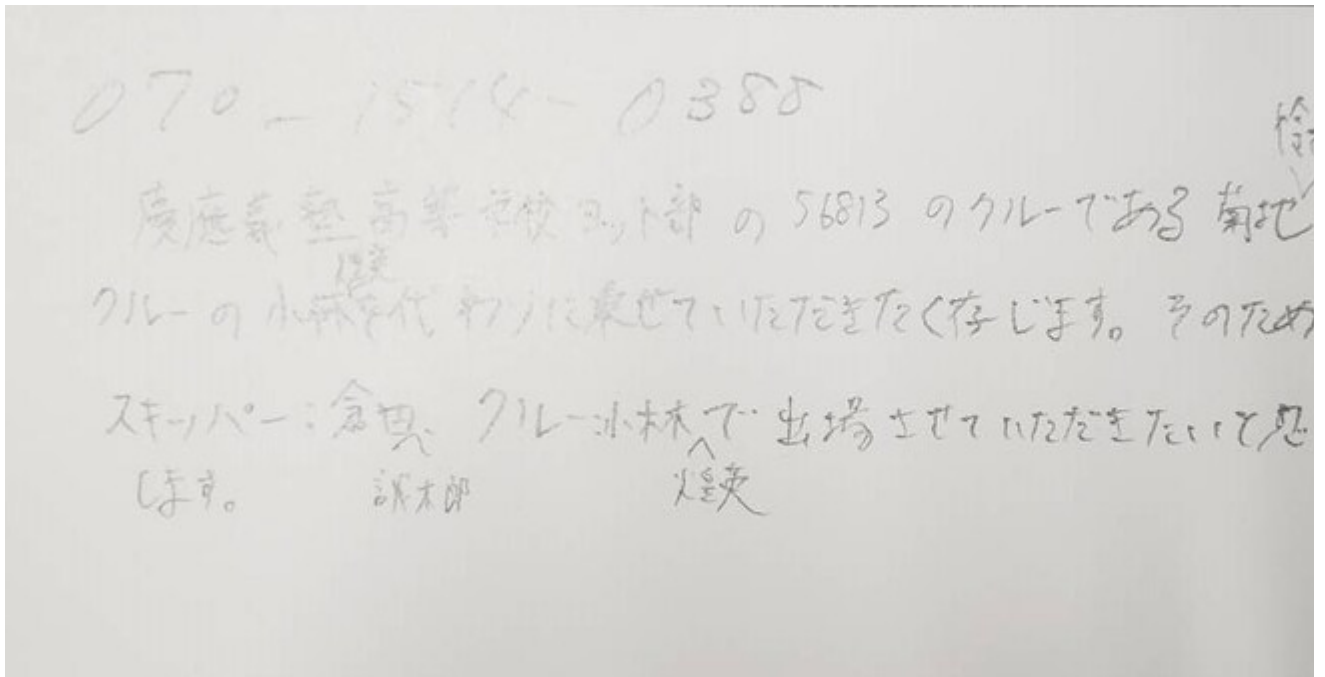 070-1514-0388
慶應義塾高等学校ヨット部の 56813 のクルーである 菊地
煌英
クルーの 小林を代わりに乗せていただきたく存じます。そのため
スキッパー:倉田、クルー:小林で出場させていただきたいと思
します。 誠太郎 煌英